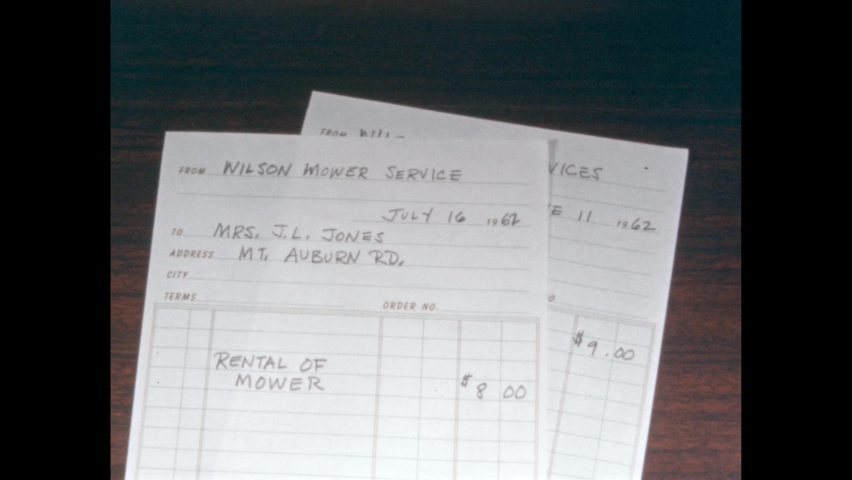 FROM WILSON MOWER SERVICE
JULY 16 1962
TO MRS. J.L. JONES
ADDRESS MT. AUBURN RD.
CITY
TERMS ORDER NO.
RENTAL OF
MOWER $8 00
FROM
VICES
E 11 1962
O.
$9.00